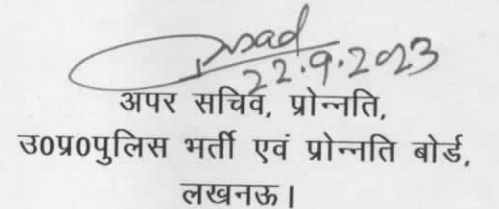 22.9.2023
अपर सचिव, प्रोन्नति,
उ0प्र0पुलिस भर्ती एवं प्रोन्नति बोर्ड,
लखनऊ।